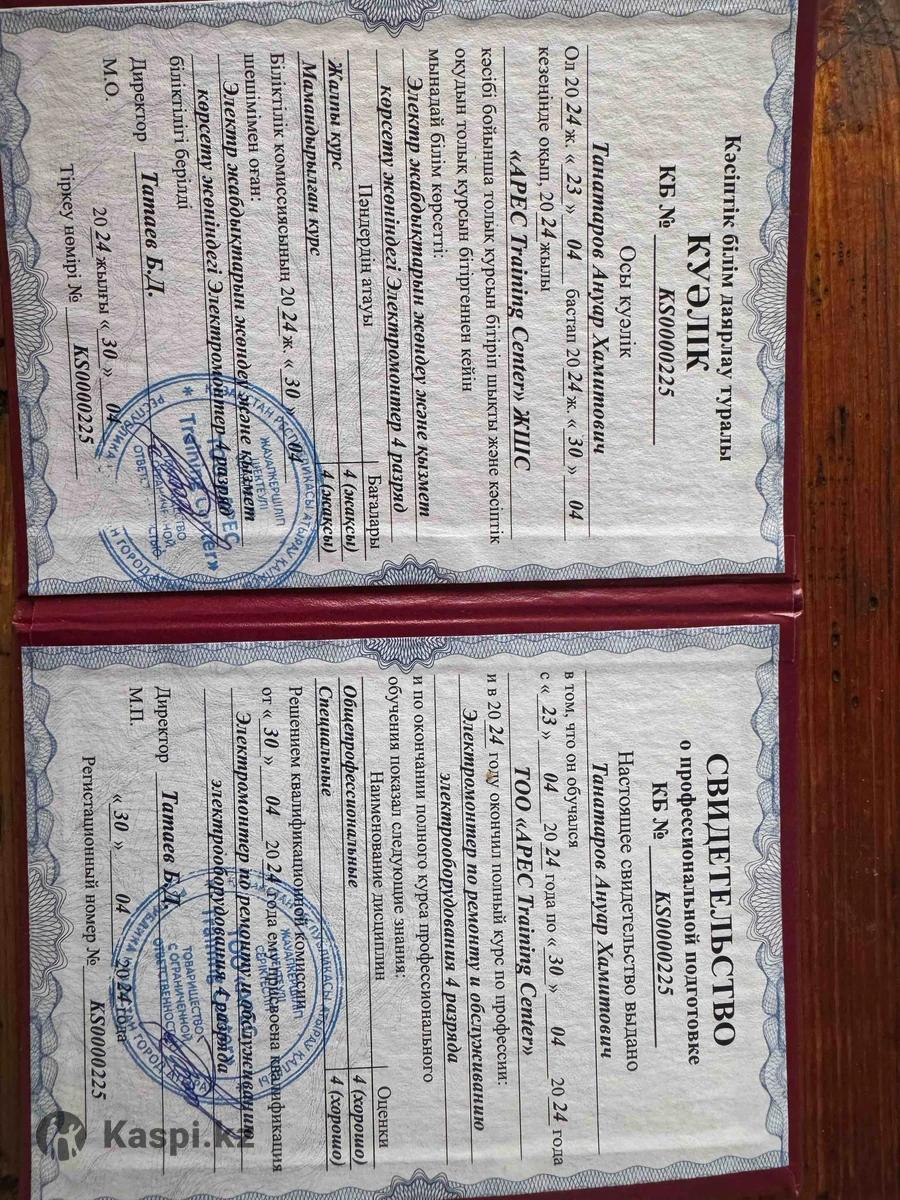 Кәсіптік білім даярлау туралы
КУӘЛІК
КБ № KS0000225
Осы куәлік
Танатаров Ануар Хамитович
Ол 20 24 ж. « 23 » 04 бастап 20 24 ж. « 30 » 04
кезеңінде оқып, 20 24 жылы
«АРЕС Training Center» ЖШС
кәсібі бойынша толық курсын бітіріп шықты және кәсіптік
оқудың толық курсын бітіргеннен кейін
мынадай білім көрсетті:
Электр жабдықтарын жөндеу және қызмет
көрсету жөніндегі Электромонтер 4 разряд
Пәндердің атауы Бағалары
Жалпы курс 4 (жақсы)
Мамандырылған курс 4 (жақсы)
Біліктілік комиссиясының 20 24 ж « 30 » 04
шешімімен оған:
Электр жабдықтарын жөндеу және қызмет
көрсету жөніндегі Электромонтер 4 разряд
біліктілігі берілді
Директор Татаев Б.Д.
М.О.
20 24 жылғы « 30 » 04
Тіркеу нөмірі № KS0000225
СВИДЕТЕЛЬСТВО
о профессиональной подготовке
КБ № KS0000225
Настоящее свидетельство выдано
Танатаров Ануар Хамитович
в том, что он обучался
с « 23 » 04 20 24 года по « 30 » 04 20 24 года
ТОО «АРЕС Training Center»
и в 20 24 году окончил полный курс по профессии:
Электромонтер по ремонту и обслуживанию
электрооборудования 4 разряда
и по окончании полного курса профессионального
обучения показал следующие знания:
Наименование дисциплин Оценки
Общепрофессиональные 4 (хорошо)
Специальные 4 (хорошо)
Решением квалификационной комиссии
от « 30 » 04 20 24 года ему присвоена квалификация
Электромонтер по ремонту и обслуживанию
электрооборудования 4 разряда
Директор Татаев Б.Д.
М.П.
« 30 » 04 2024 года
Регистационный номер № KS0000225
Kaspi.kz